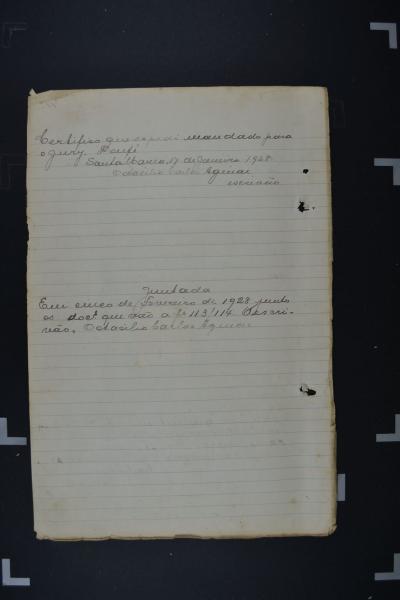 Certifico que expedi mandado para
o jury. Dou fé
Santa Maria, 17 de Janeiro 1928
Octacilio Carlos Aguiar
escrivão
Juntada
Em cinco de Fevereiro de 1928 junto
os doct que vão a fs 113/114 O escri-
vão, Octacilio Carlos Aguiar